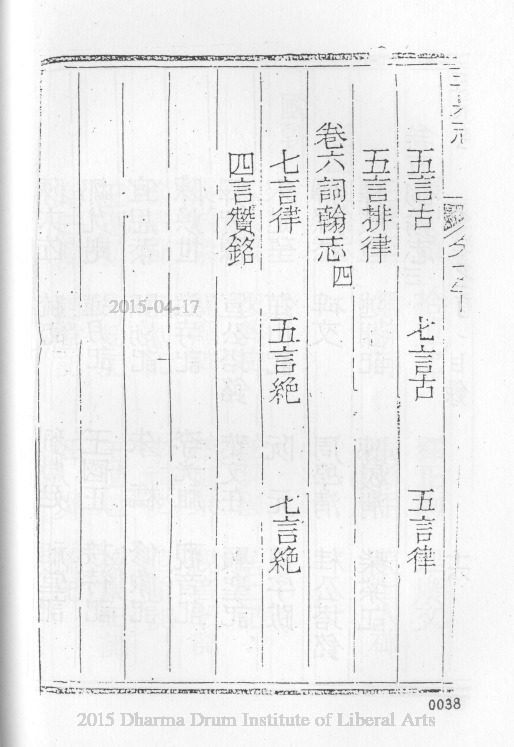 五言古　七言古　五言律
五言排律
卷六詞翰志四
七言律　五言絶　七言絶
四言贊銘
2015-04-17
0038
2015 Dharma Drum Institute of Liberal Arts